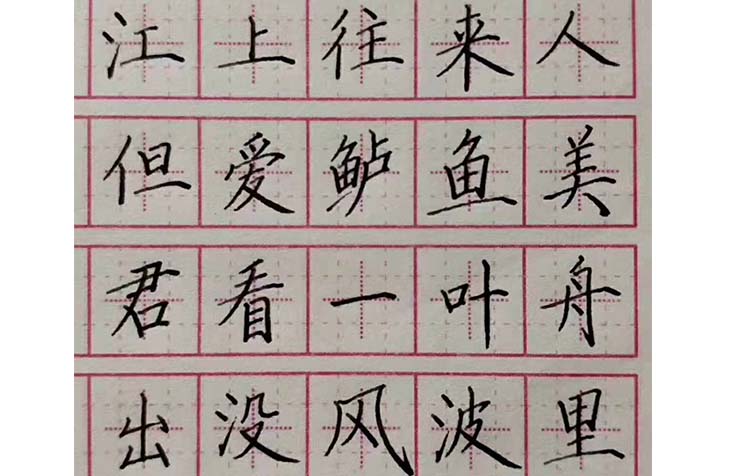 江上往来人
但爱鲈鱼美
君看一叶舟
出没风波里